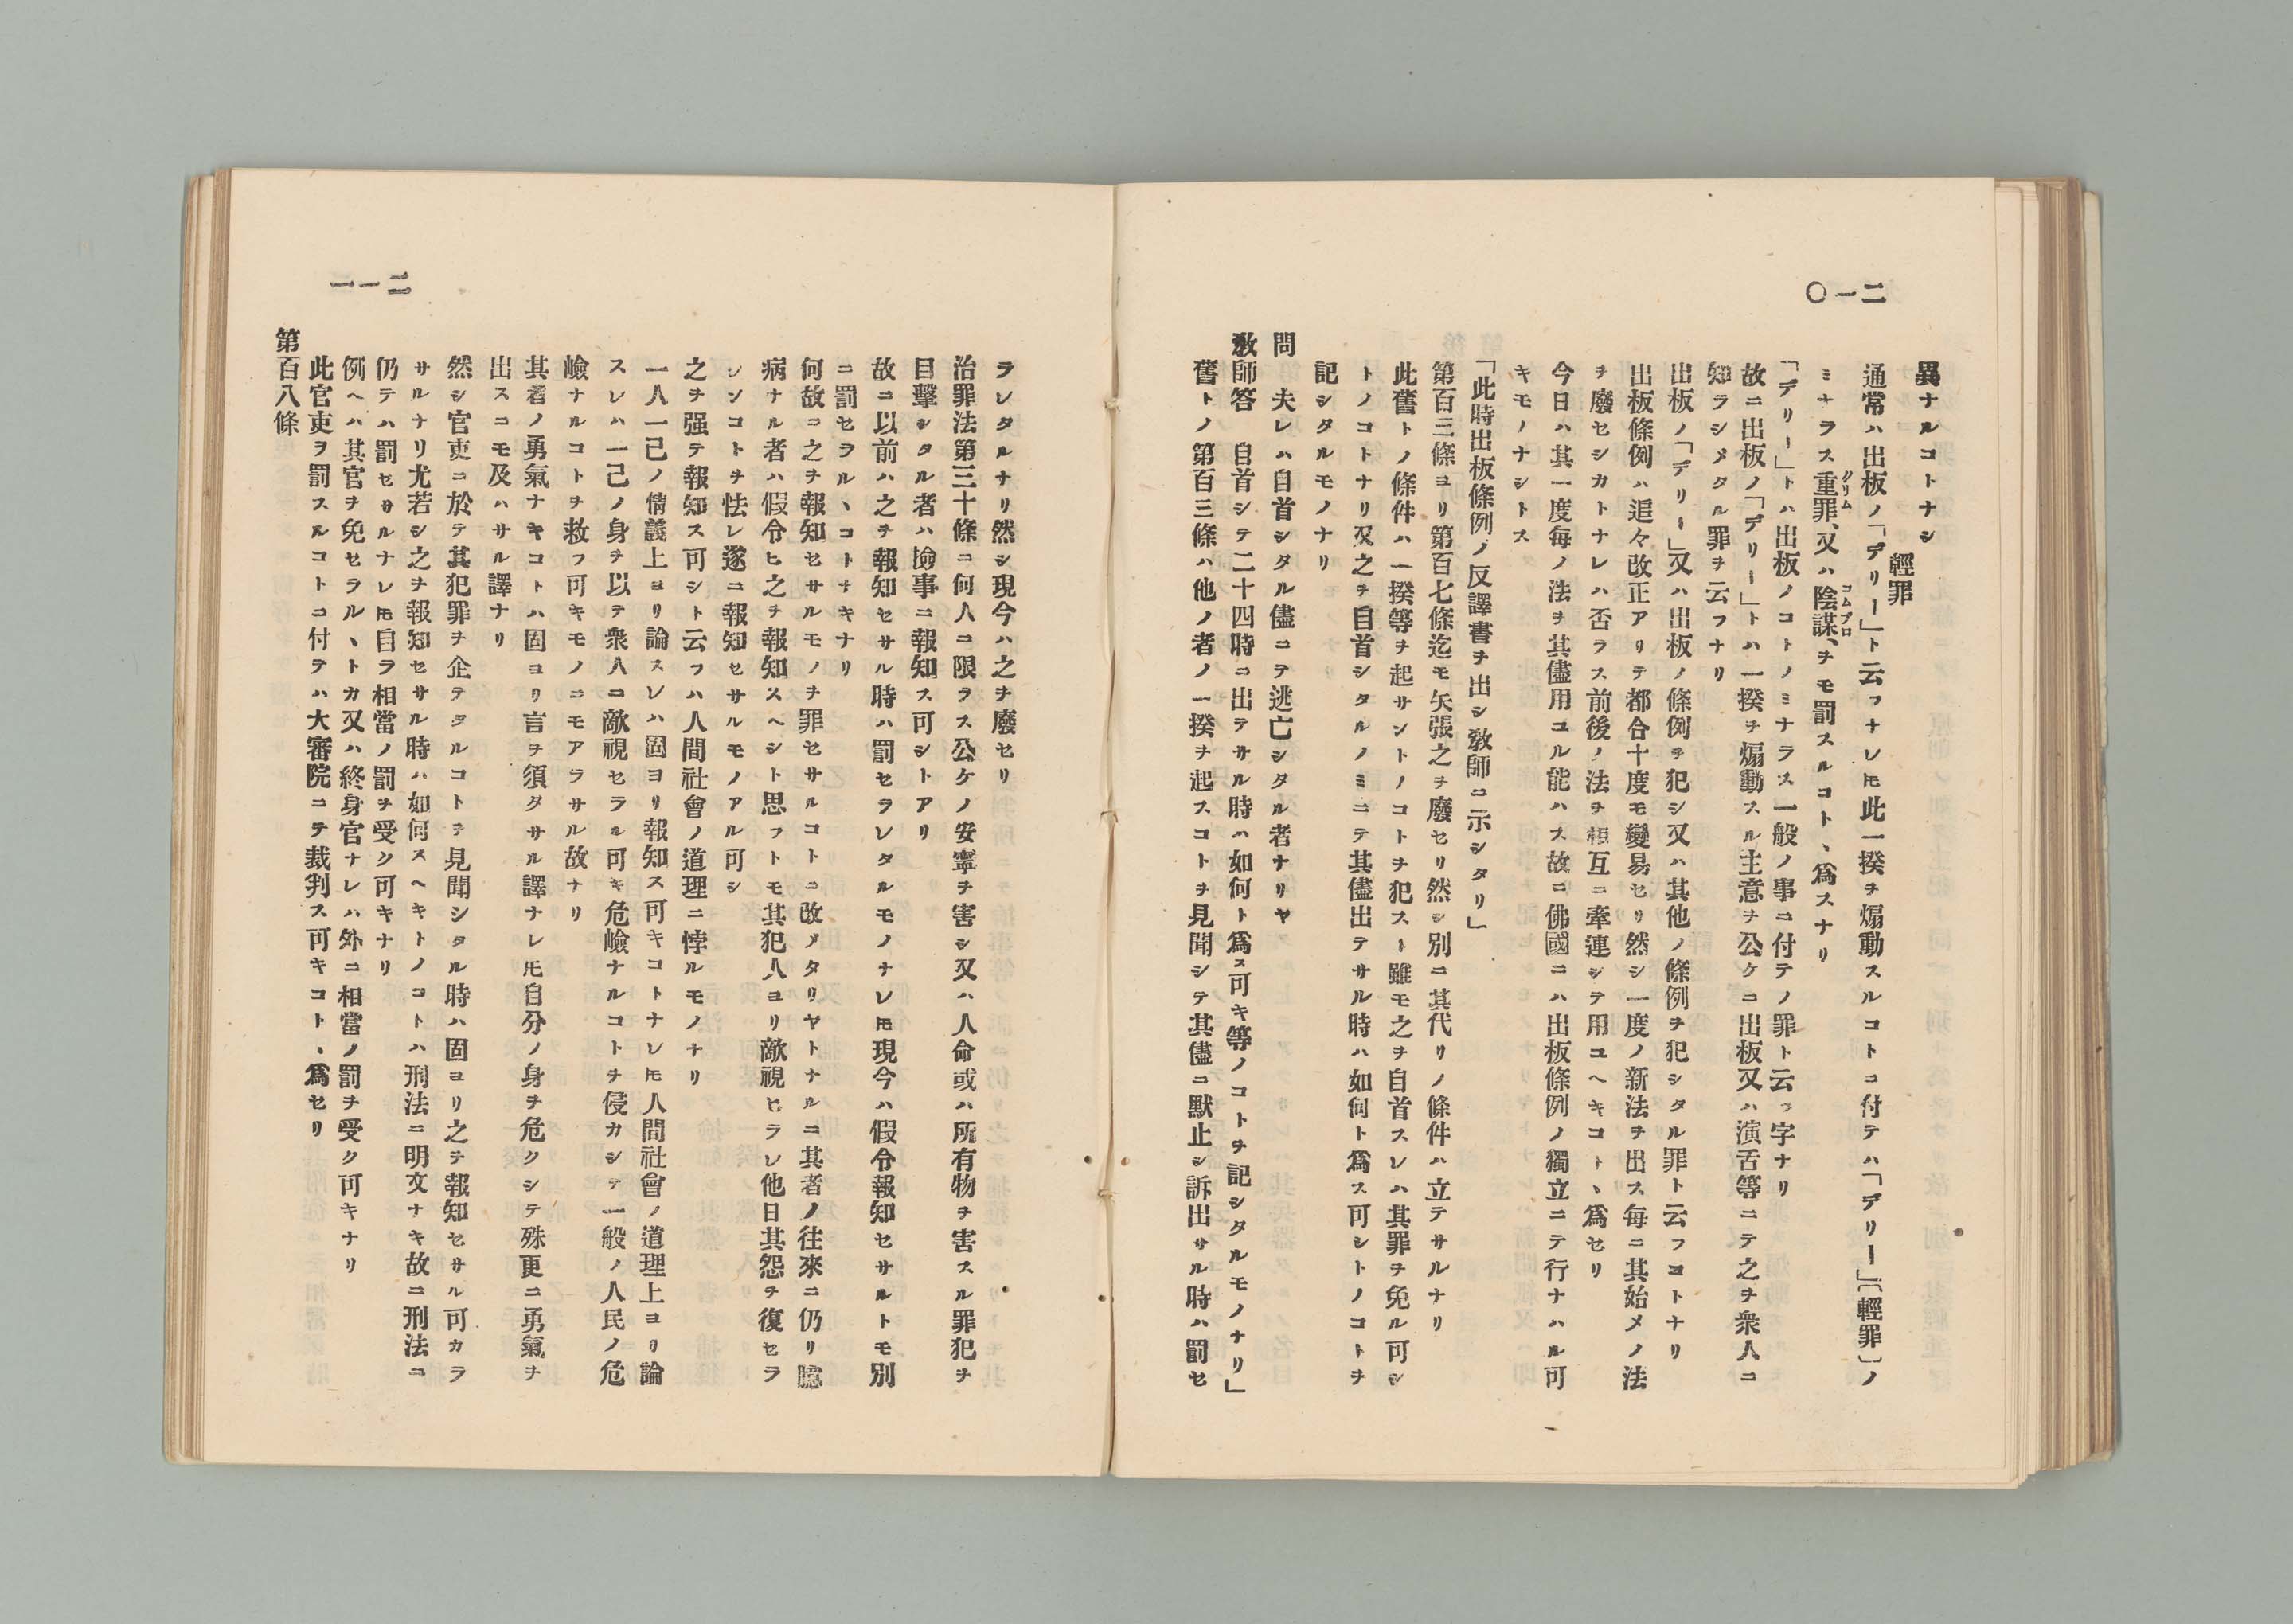 二一〇
異ナルコトナシ
輕罪
通常ハ出板ノ「デリー」ト云フナレ𪜈此一揆ヲ煽動スルコトニ付テハ「デリー」〔輕罪〕ノ
ミナラス重罪、又ハ陰謀、ヲモ罰スルコトヽ爲スナリ
クリム
コムプロ
「デリー」トハ出板ノコトノミナラス一般ノ事ニ付テノ罪ト云フ字ナリ
故ニ出板ノ「デリー」トハ一揆ヲ煽動スル主意ヲ公ケニ出板又ハ演舌等ニテ之ヲ衆人ニ
知ラシメタル罪ヲ云フナリ
出板ノ「デリー」又ハ出板ノ條例ヲ犯シ又ハ其他ノ條例ヲ犯シタル罪ト云フコトナリ
出板條例ハ追々改正アリテ都合十度モ變易セリ然シ一度ノ新法ヲ出ス毎ニ其始メノ法
ヲ廢セシカトナレハ否ラス前後ノ法ヲ相互ニ牽連シテ用ユヘキコトヽ爲セリ
今日ハ其一度毎ノ法ヲ其儘用ユル能ハス故ニ佛國ニハ出板條例ノ獨立ニテ行ナハル可
キモノナシトス
「此時出板條例ノ反譯書ヲ出シ敎師ニ示シタリ」
第百三條ヨリ第百七條迄モ矢張之ヲ廢セリ然シ別ニ其代リノ條件ハ立テサルナリ
此舊トノ條件ハ一揆等ヲ起サントノコトヲ犯スト雖モ之ヲ自首スレハ其罪ヲ免ル可シ
トノコトナリ又之ヲ自首シタルノミニテ其儘出テサル時ハ如何ト爲ス可シトノコトヲ
記シタルモノナリ
問　夫レハ自首シタル儘ニテ逃亡シタル者ナリヤ
敎師答　自首シテ二十四時ニ出テサル時ハ如何ト爲ス可キ等ノコトヲ記シタルモノナリ」
舊トノ第百三條ハ他ノ者ノ一揆ヲ起スコトヲ見聞シテ其儘ニ默止シ訴出サル時ハ罰セ
二一一
ラレタルナリ然シ現今ハ之ヲ廢セリ
治罪法第三十條ニ何人ニ限ラス公ケノ安寧ヲ害シ又ハ人命或ハ所有物ヲ害スル罪犯ヲ
目擊シタル者ハ撿事ニ報知ス可シトアリ
故ニ以前ハ之ヲ報知セサル時ハ罰セラレタルモノナレ𪜈現今ハ假令報知セサルトモ別
ニ罰セラルヽコトナキナリ
何故ニ之ヲ報知セサルモノヲ罪セサルコトニ改メタリヤトナルニ其者ノ往來ニ仍リ臆
病ナル者ハ假令ヒ之ヲ報知スヘシト思フトモ其犯人ヨリ敵視セラレ他日其怨ヲ復セラ
レンコトヲ怯レ遂ニ報知セサルモノアル可シ
之ヲ强テ報知ス可シト云フハ人間社會ノ道理ニ悖ルモノナリ
一人一己ノ情義上ヨリ論スレハ固ヨリ報知ス可キコトナレ𪜈人間社會ノ道理上ヨリ論
スレハ一己ノ身ヲ以テ衆人ニ敵視セラル可キ危嶮ナルコトヲ侵カシテ一般ノ人民ノ危
嶮ナルコトヲ救フ可キモノニモアラサル故ナリ
其者ノ勇氣ナキコトハ固ヨリ言ヲ須タサル譯ナレ𪜈自分ノ身ヲ危クシテ殊更ニ勇氣ヲ
出スニモ及ハサル譯ナリ
然シ官吏ニ於テ其犯罪ヲ企テタルコトヲ見聞シタル時ハ固ヨリ之ヲ報知セサル可カラ
サルナリ尤若シ之ヲ報知セサル時ハ如何スヘキトノコトハ刑法ニ明文ナキ故ニ刑法ニ
仍テハ罰セサルナレ𪜈自ラ相當ノ罰ヲ受ク可キナリ
例ヘハ其官ヲ免セラルヽトカ又ハ終身官ナレハ外ニ相當ノ罰ヲ受ク可キナリ
此官吏ヲ罰スルコトニ付テハ大審院ニテ裁判ス可キコトヽ爲セリ
第百八條